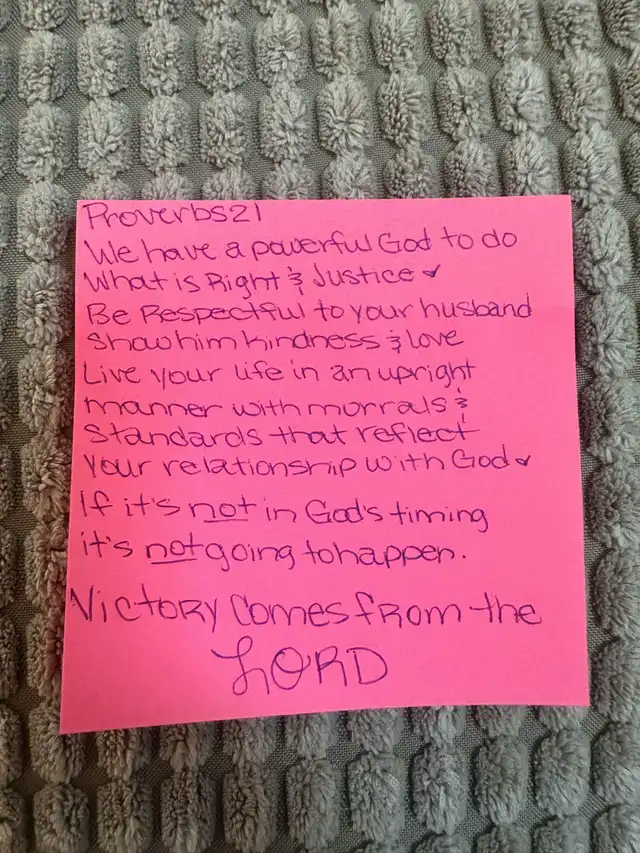 Proverbs 21
We have a powerful God to do
What is Right & Justice ✔
Be Respectful to your husband
Show him kindness & love
Live your life in an upright
manner with morrals &
Standards that reflect
your relationship with God ✔
If it's not in God's timing
it's not going to happen.
Victory Comes from the
LORD